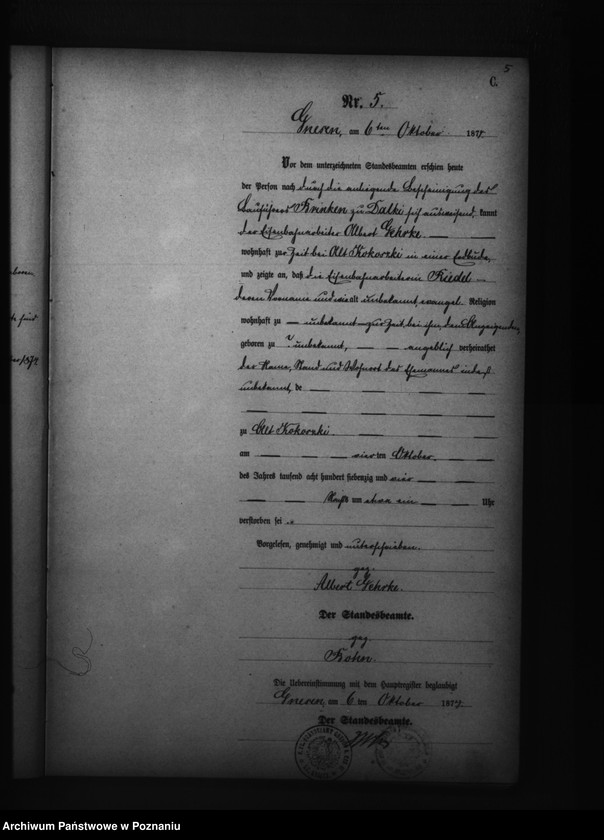 5
C.
Nr. 5.
Gnesen, am 6 ten Oktober 1874
Vor dem unterzeichneten Standesbeamten erschien heute
der Person nach durch die anliegende Bescheinigung des
Bauführers Krinken zu Dalki sich ausweisend, kannt
der Eisenbahnarbeiter Albert Gehrke.
wohnhaft zur Zeit bei Alt Kokorzki in einer Erdbude,
und zeigte an, daß die Eisenbahnarbeiterin Riedel
deren Vorname und wie alt unbekannt, evangel. Religion
wohnhaft zu unbekannt zur Zeit bei ihm, dem Anzeigenden,
geboren zu ? unbekannt, angeblich verheirathet
der Name, Stand und Wohnort des Ehemannes indeß
unbekannt, de
zu Alt Kokorzki
am vier ten Oktober
des Jahres tausend acht hundert siebenzig und vier
Nachts um etwa ein Uhr
verstorben sei.
Vorgelesen, genehmigt und unterschrieben.
gez.
Albert Gehrke.
Der Standesbeamte.
gez
Die Uebereinstimmung mit dem Hauptregister beglaubigt
Gnesen, am 6 ten Oktober 1874
Der Standesbeamte.
Archiwum Państwowe w Poznaniu